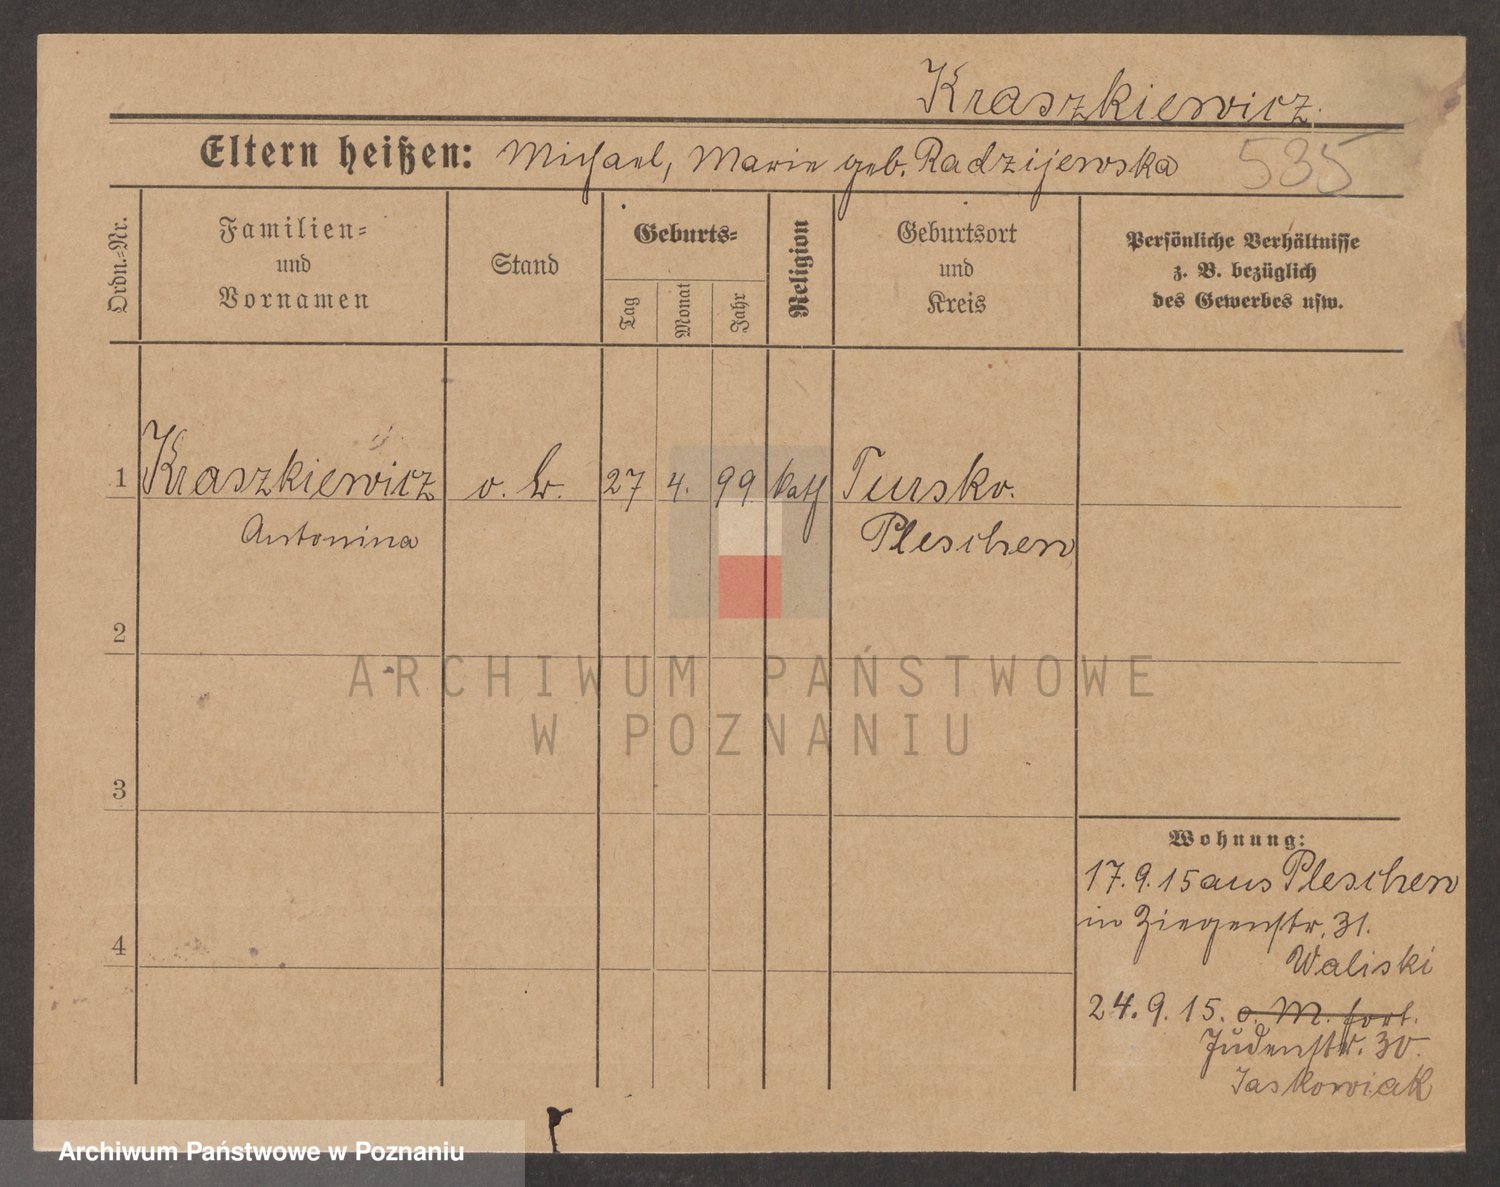 Kraszkiewicz.
Eltern heißen: Michael, Marie geb. Radzijewska 535
Ordn.-Nr.
Familien-
und
Vornamen
Stand
Geburts-
Tag
Monat
Jahr
Religion
Geburtsort
und
Kreis
Persönliche Verhältnisse
z. B. bezüglich
des Gewerbes usw.
1 Kraszkiewicz o. B. 27 4. 99 kath Tursko.
Antonina Pleschen
2
3
4
Wohnung:
17.9.15 aus Pleschen
in Ziegenstr. 31.
Waliski
24.9.15. o. M. fort.
Judenstr. 30.
Jaskowiak
ARCHIWUM PAŃSTWOWE
W POZNANIU
Archiwum Państwowe w Poznaniu